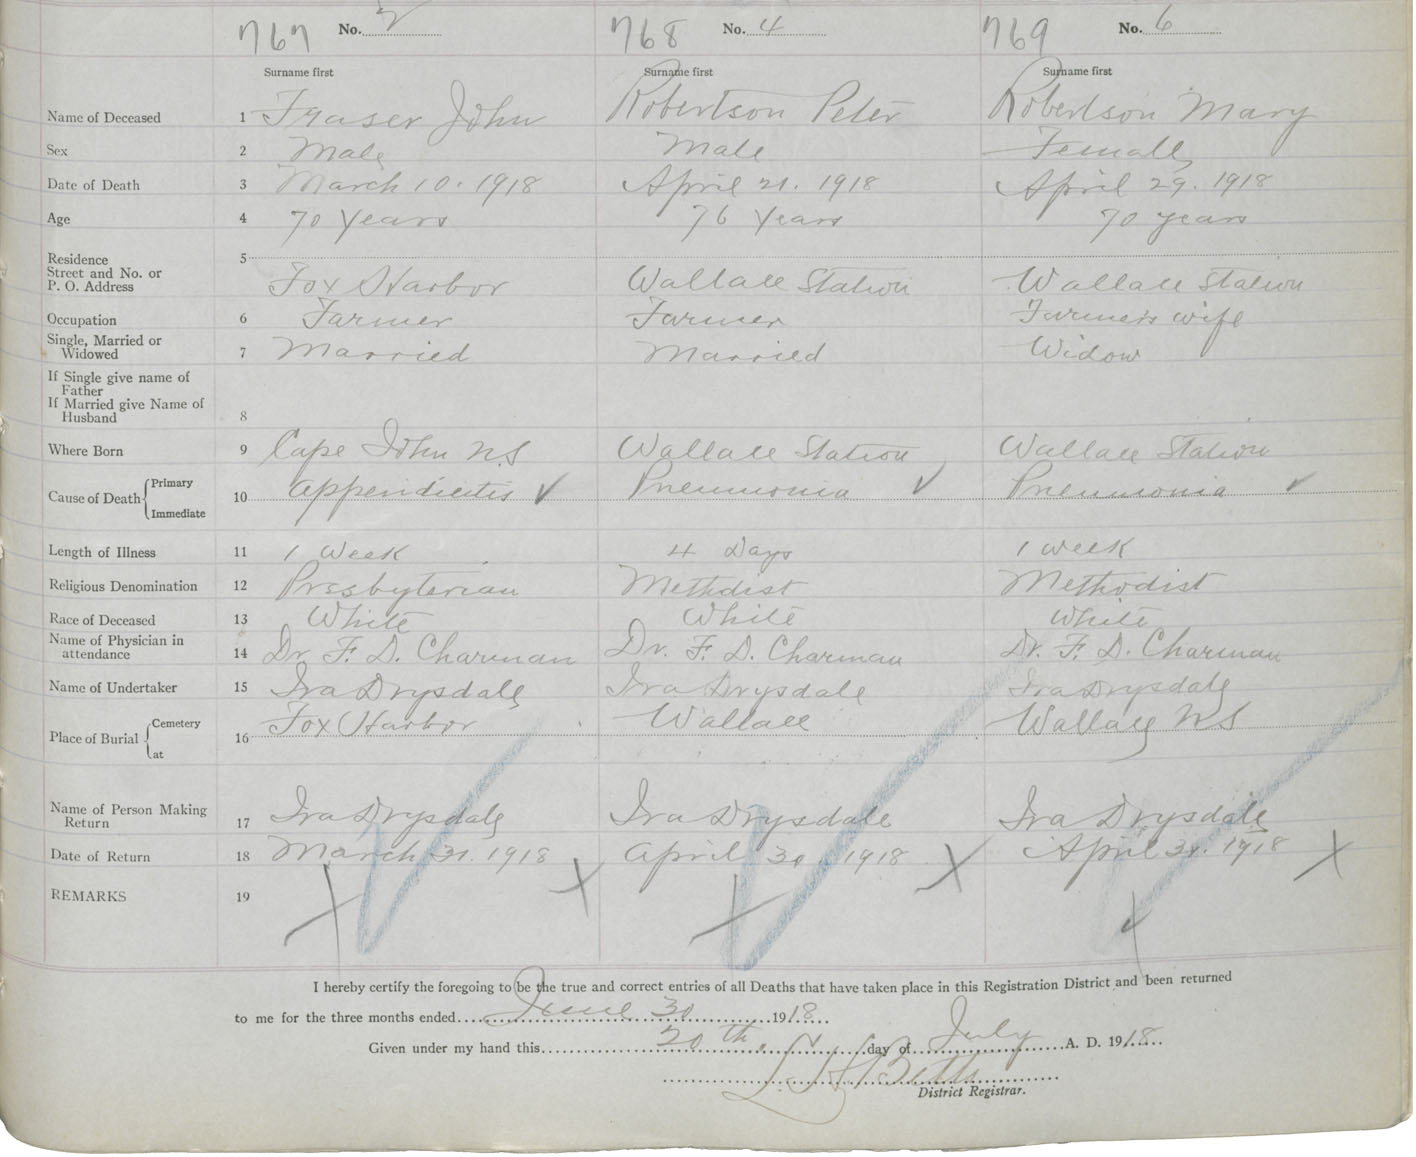 767 No. 2 768 No. 4 769 No. 6
Surname first Surname first Surname first
Name of Deceased 1 Fraser John Robertson Peter Robertson Mary
Sex 2 Male Male Female
Date of Death 3 March 10. 1918 April 21. 1918 April 29. 1918
Age 4 70 Years 76 Years 70 years
Residence
Street and No. or
P. O. Address 5 Fox Harbor Wallace Station Wallace Station
Occupation 6 Farmer Farmer Farmers wife
Single, Married or
Widowed 7 Married Married Widow
If Single give name of
Father
If Married give Name of
Husband 8
Where Born 9 Cape John N.S Wallace Station Wallace Station
Cause of Death Primary
Immediate 10 appendicitis ✓ Pneumonia ✓ Pneumonia ✓
Length of Illness 11 1 Week 4 Days 1 week
Religious Denomination 12 Presbyterian Methdist Methodist
Race of Deceased 13 White White White
Name of Physician in
attendance 14 Dr. F. D. Charman Dr. F. D. Charman Dr. F. D. Charman
Name of Undertaker 15 Ira Drysdale Ira Drysdale Ira Drysdale
Place of Burial Cemetery
at 16 Fox Harbor Wallace Wallace N S
Name of Person Making
Return 17 Ira Drysdale Ira Drysdale Ira Drysdale
Date of Return 18 March 31. 1918 April 30 1918 April 30. 1918
REMARKS 19
I hereby certify the foregoing to be the true and correct entries of all Deaths that have taken place in this Registration District and been returned
to me for the three months ended June 30 1918
Given under my hand this 20th. day of July A. D. 1918
Betts
District Registrar.